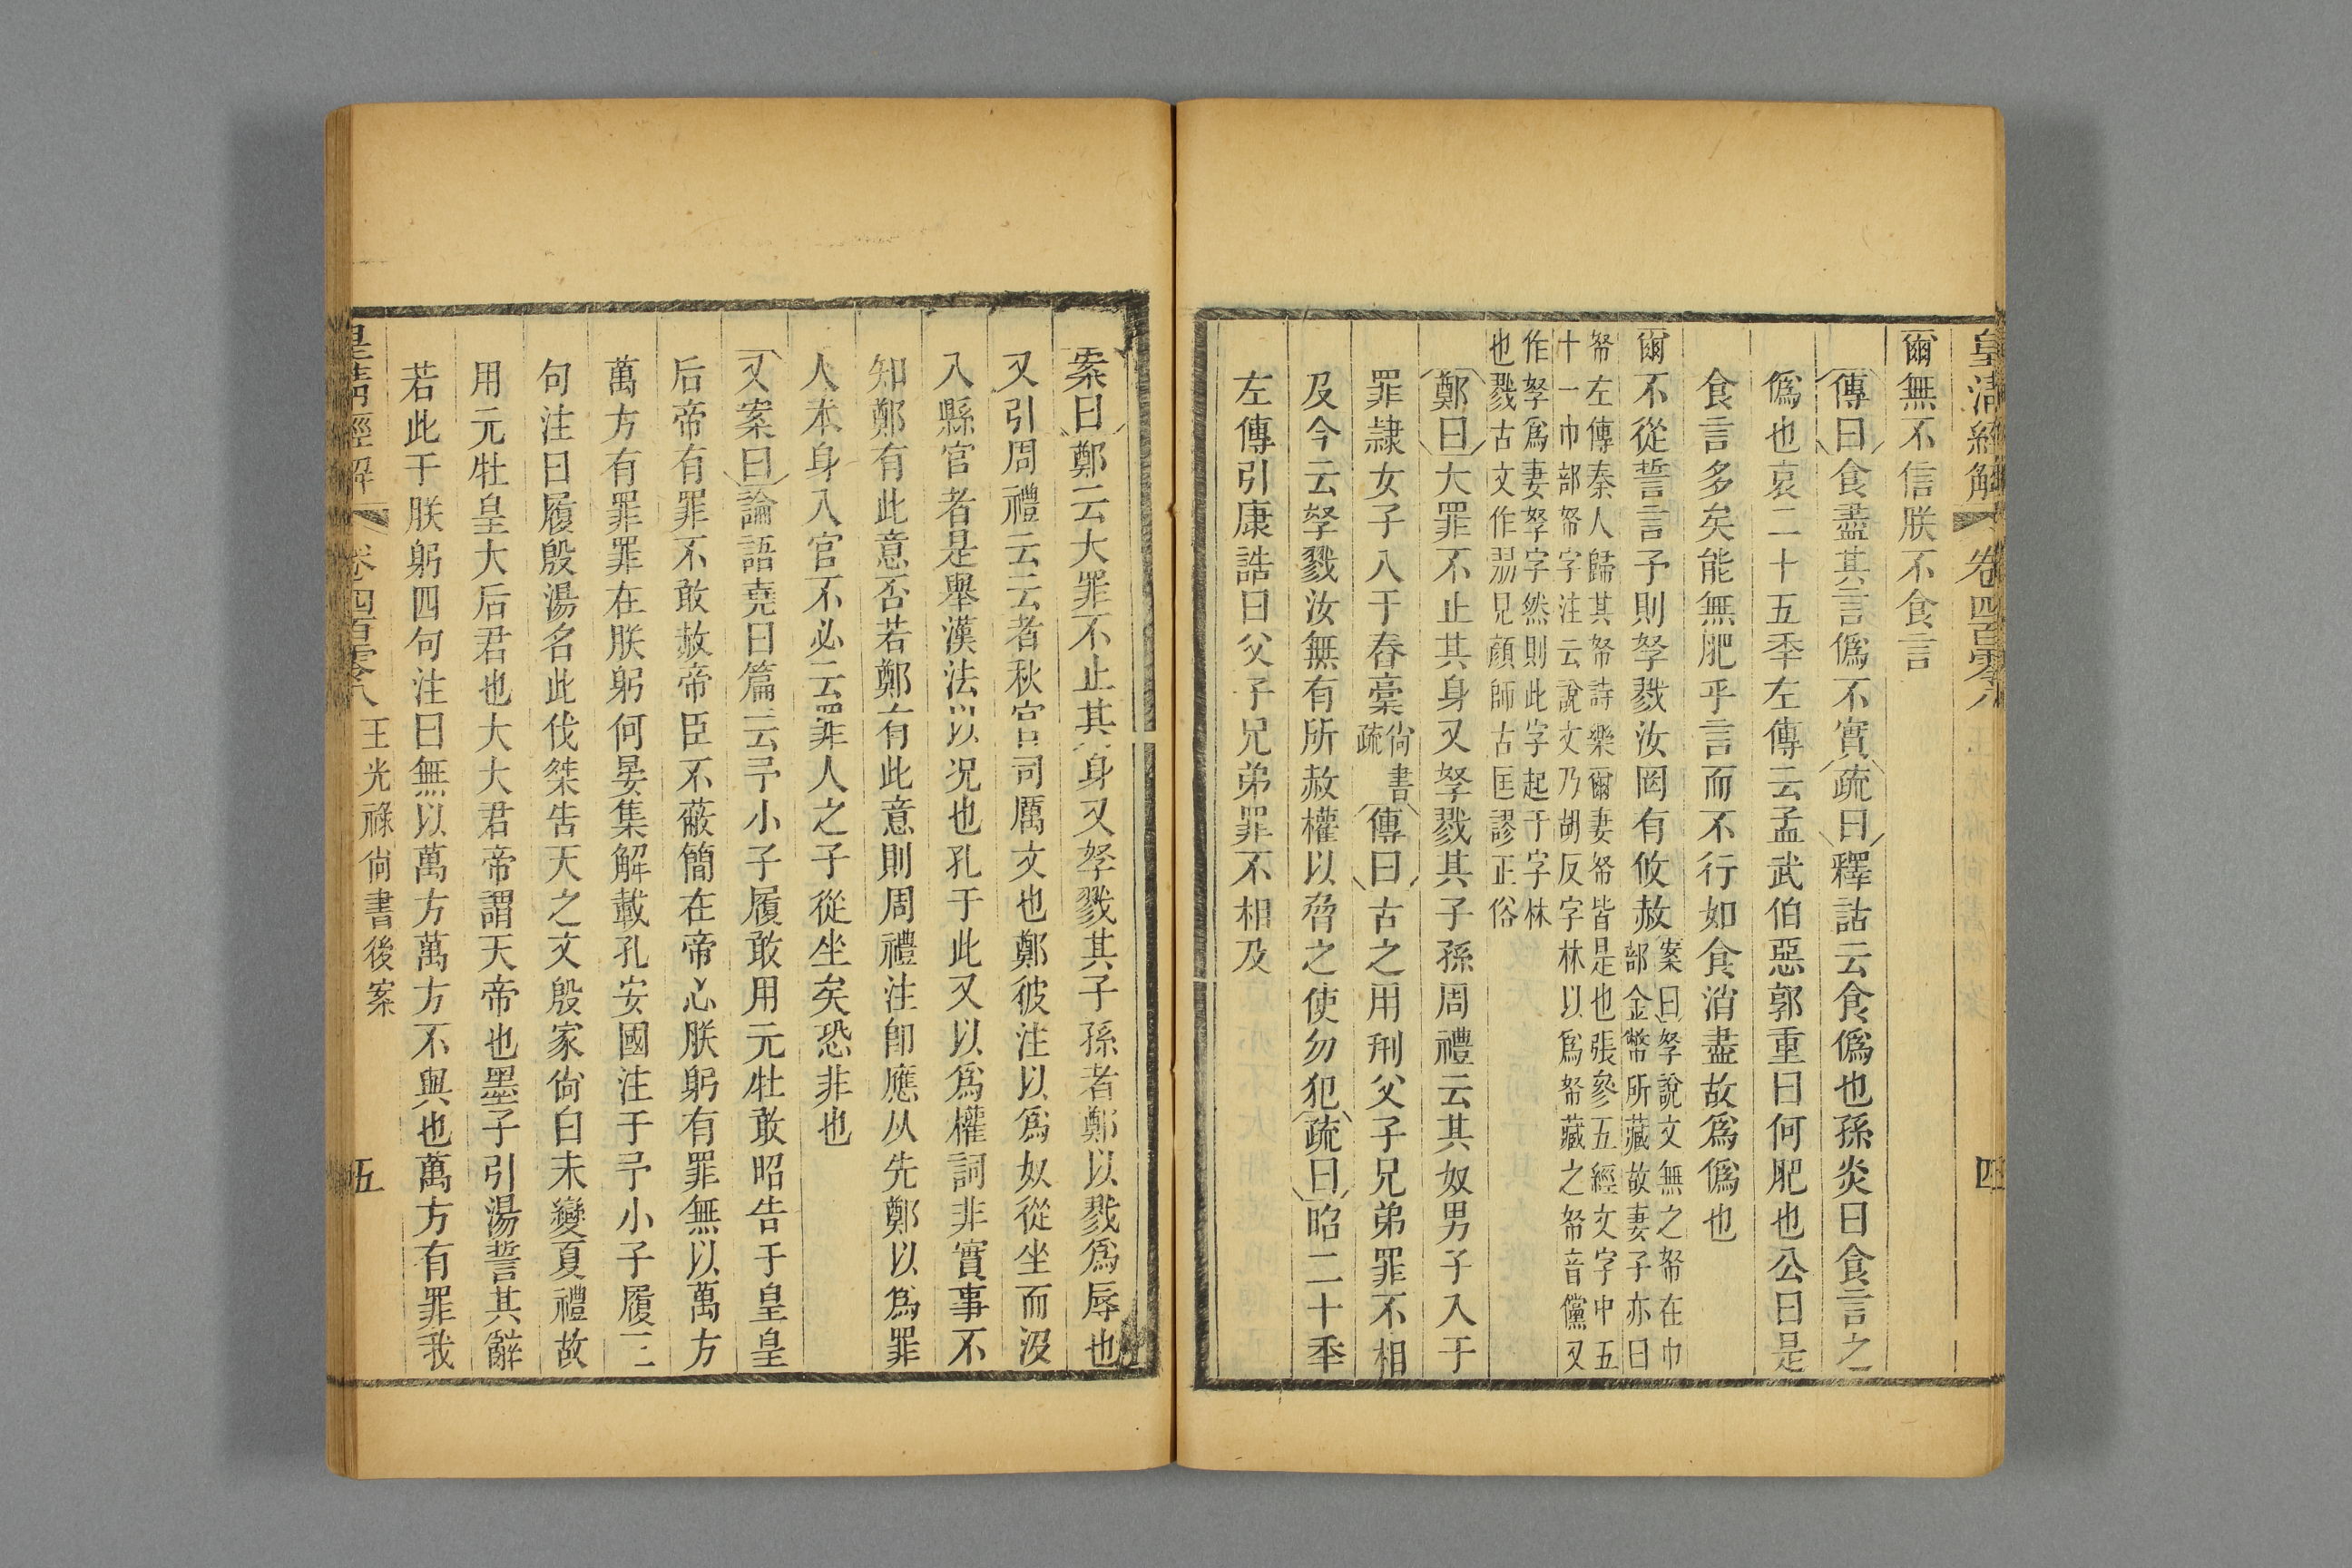 皇清經解
卷四百零八
四
爾無不信朕不食言
傳曰食盡其言僞不實疏曰釋詁云食僞也孫炎曰食言之
僞也哀二十五秊左傳云孟武伯惡郭重曰何肥也公曰是
食言多矣能無肥乎言而不行如食消盡故爲僞也
爾不從誓言予則孥戮汝罔有攸赦
案曰孥說文無之帑在巾
部金幣所藏故妻子亦曰
帑左傳秦人歸其帑詩樂爾妻帑皆是也張參五經文字中五
十一巾部帑字注云說文乃胡反字林以爲帑藏之帑音儻又
作孥爲妻孥字然則此字起于字林
也戮古文作翏見顏師古匡謬正俗
鄭曰大罪不止其身又孥戮其子孫周禮云其奴男子入于
罪隷女子入于舂稾
尙書
疏
傳曰古之用刑父子兄弟罪不相
及今云孥戮汝無有所赦權以脅之使勿犯疏曰昭二十秊
左傳引康誥曰父子兄弟罪不相及
案曰鄭云大罪不止其身又孥戮其子孫者鄭以戮爲辱也
又引周禮云云者秋官司厲文也鄭彼注以爲奴從坐而沒
入縣官者是舉漢法以况也孔于此又以爲權詞非實事不
知鄭有此意否若鄭有此意則周禮注卽應从先鄭以爲罪
人本身入官不必云罪人之子從坐矣恐非也
又案曰論語堯曰篇云予小子履敢用元牡敢昭告于皇皇
后帝有罪不敢赦帝臣不蔽簡在帝心朕躬有罪無以萬方
萬方有罪罪在朕躬何晏集解載孔安國注于予小子履三
句注曰履殷湯名此伐桀告天之文殷家尙白未變夏禮故
用元牡皇大后君也大大君帝謂天帝也墨子引湯誓其辭
若此于朕躬四句注曰無以萬方萬方不與也萬方有罪我
皇清經解
卷四百零八
王光祿尙書後案
五